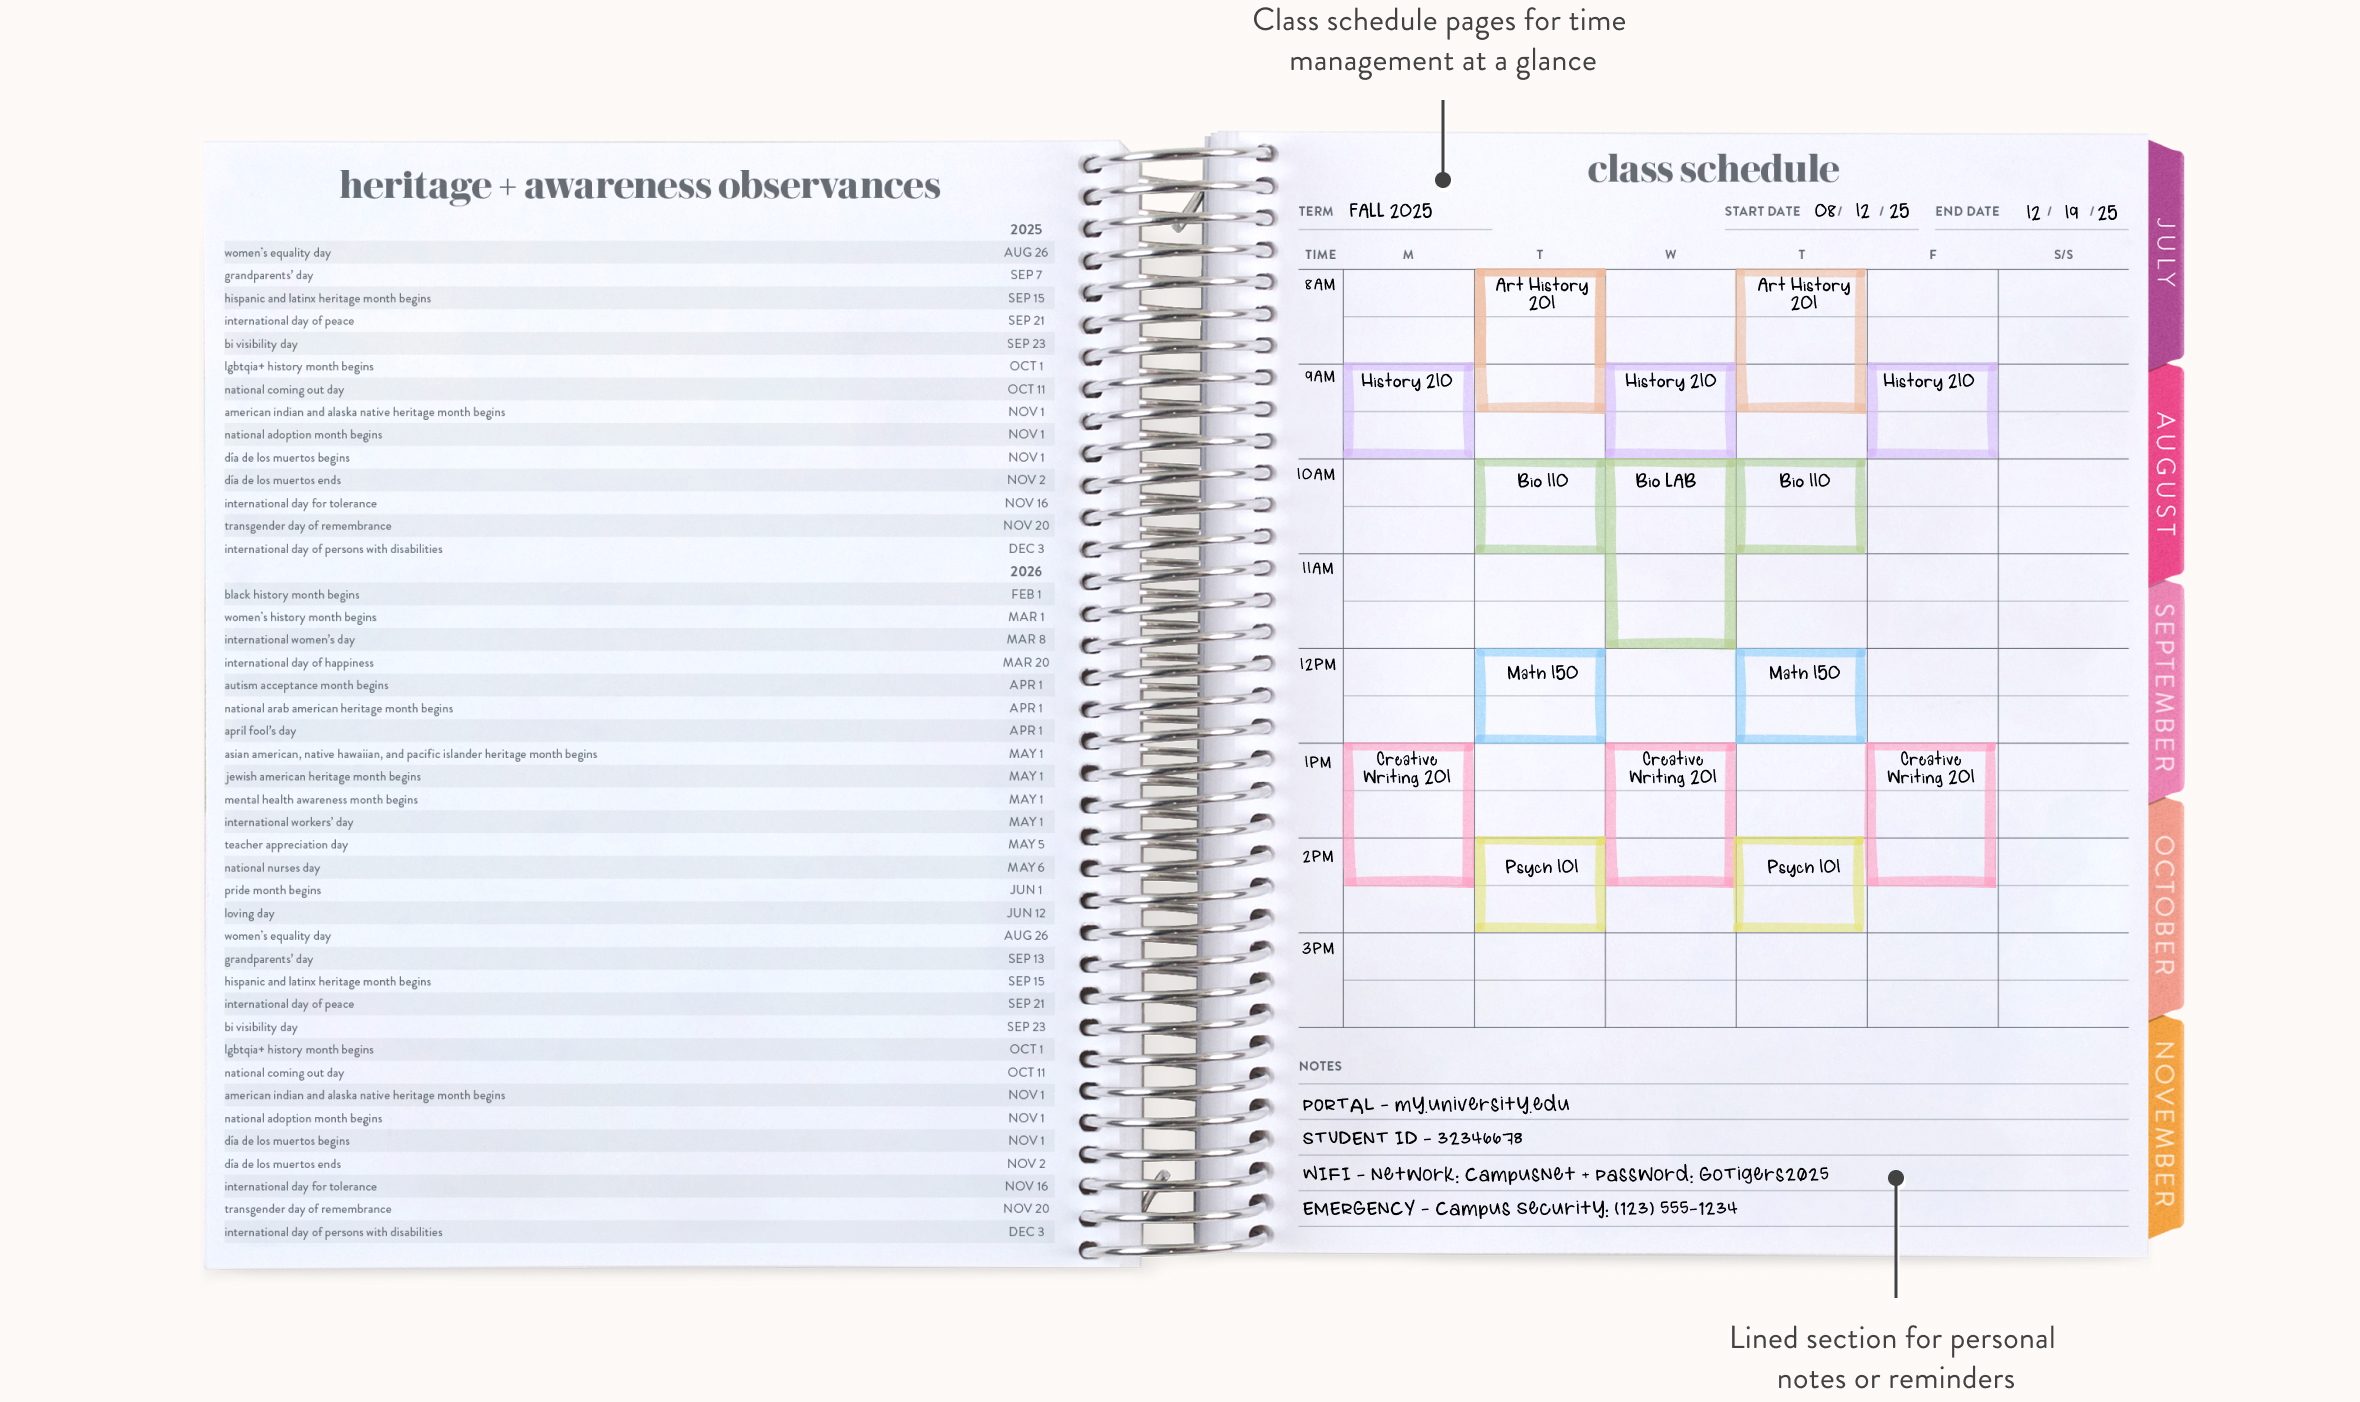 Class schedule pages for time
management at a glance
heritage + awareness observances
2025
women's equality day AUG 26
grandparents' day SEP 7
hispanic and latinx heritage month begins SEP 15
international day of peace SEP 21
bi visibility day SEP 23
lgbtqia+ history month begins OCT 1
national coming out day OCT 11
american indian and alaska native heritage month begins NOV 1
national adoption month begins NOV 1
día de los muertos begins NOV 1
día de los muertos ends NOV 2
international day for tolerance NOV 16
transgender day of remembrance NOV 20
international day of persons with disabilities DEC 3
2026
black history month begins FEB 1
women's history month begins MAR 1
international women's day MAR 8
international day of happiness MAR 20
autism acceptance month begins APR 1
national arab american heritage month begins APR 1
april fool's day APR 1
asian american, native hawaiian, and pacific islander heritage month begins MAY 1
jewish american heritage month begins MAY 1
mental health awareness month begins MAY 1
international workers' day MAY 1
teacher appreciation day MAY 5
national nurses day MAY 6
pride month begins JUN 1
loving day JUN 12
women's equality day AUG 26
grandparents' day SEP 13
hispanic and latinx heritage month begins SEP 15
international day of peace SEP 21
bi visibility day SEP 23
lgbtqia+ history month begins OCT 1
national coming out day OCT 11
american indian and alaska native heritage month begins NOV 1
national adoption month begins NOV 1
día de los muertos begins NOV 1
día de los muertos ends NOV 2
international day for tolerance NOV 16
transgender day of remembrance NOV 20
international day of persons with disabilities DEC 3
class schedule
TERM FALL 2025 START DATE 08/ 12 / 25 END DATE 12 / 19 / 25
TIME M T W T F S/S
8AM Art History Art History
201 201
9AM History 210 History 210 History 210
10AM Bio 110 Bio LAB Bio 110
11AM
12PM Math 150 Math 150
1PM Creative Creative Creative
Writing 201 Writing 201 Writing 201
2PM Psych 101 Psych 101
3PM
NOTES
PORTAL - my.university.edu
STUDENT ID - 32346678
WIFI - Network: CampusNet + Password: GoTigers2025
EMERGENCY - Campus Security: (123) 555-1234
JULY
AUGUST
SEPTEMBER
OCTOBER
NOVEMBER
Lined section for personal
notes or reminders